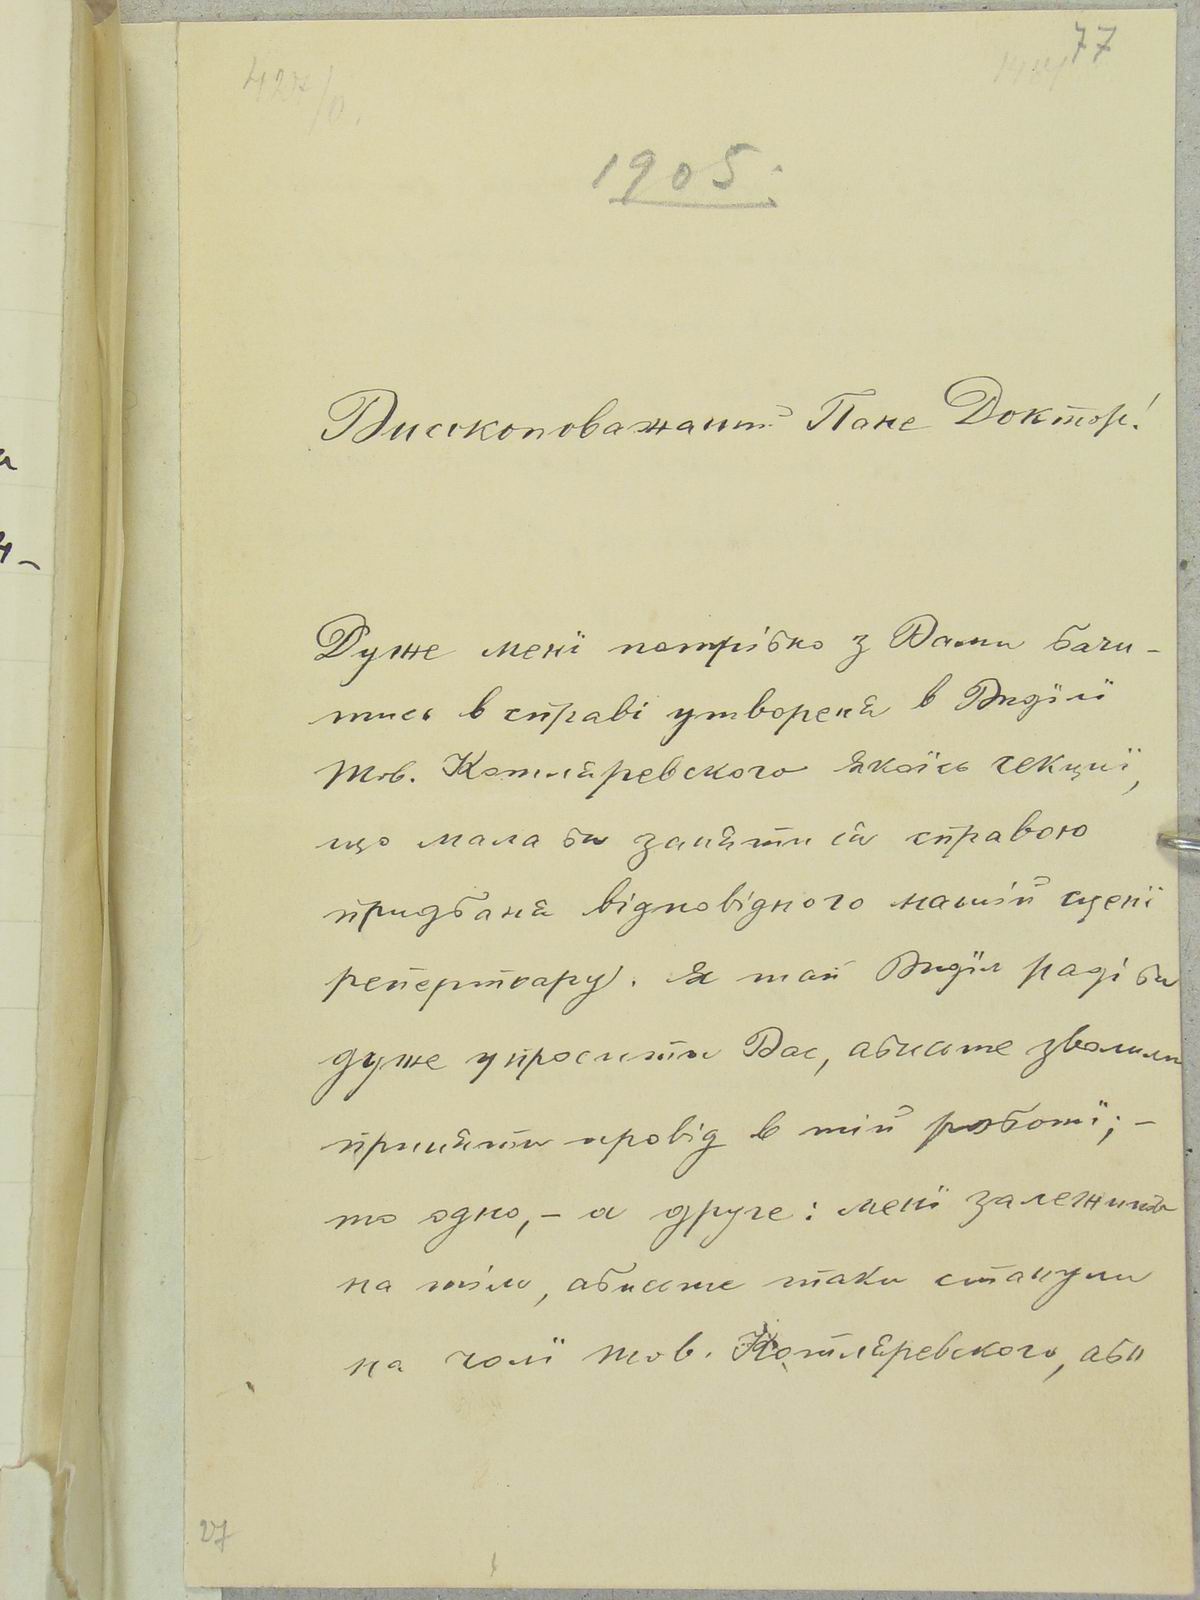 77
427/0.
1905.
Високоповажаний Пане Доктор!
Дуже менї потрібно з Вами бачи-
тись в справі утвореня в Видїлї
тов. Котляревского якоїсь секциї,
що мала би заняти ся справою
придбаня відповідного нашій сценї
репертоару. Я тай Видїл раді би
дуже упросити Вас, абисьте зволили
приняти провід в тій роботї; -
то одно, - а друге: менї залежить
на тім, абисьте таки станули
на чолї тов. Котляревского, аби
27